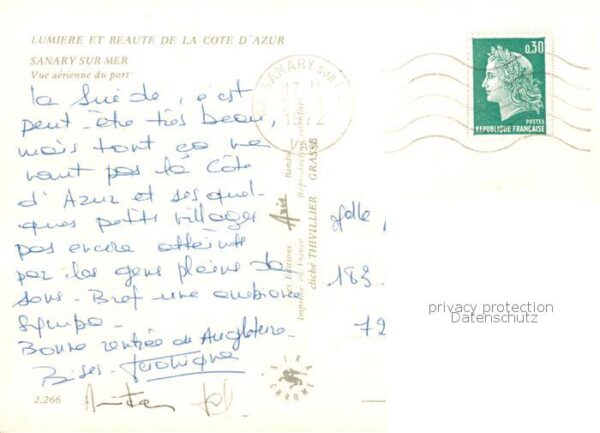 LUMIERE ET BEAUTE DE LA COTE D'AZUR
SANARY SUR MER
Vue aérienne du port
La Suède, c'est
peut-être très beau,
mais tout ça ne
vaut pas la Côte
d'Azur et ses quel-
ques petits villages
pas encore atteints
par les gens pleins de
sous. Bref une ambiance
sympa.
Bonne rentrée d'Angleterre.
Bises.
2.266
SANARY SUR
17 H
1972
VAR
0,30
POSTES
REPUBLIQUE FRANÇAISE
Editions
Imprimé en France
Reproduction
cliché THIVILLIER GRASSE
Melle
183
72
SIRA
CHROME
privacy protection
Datenschutz